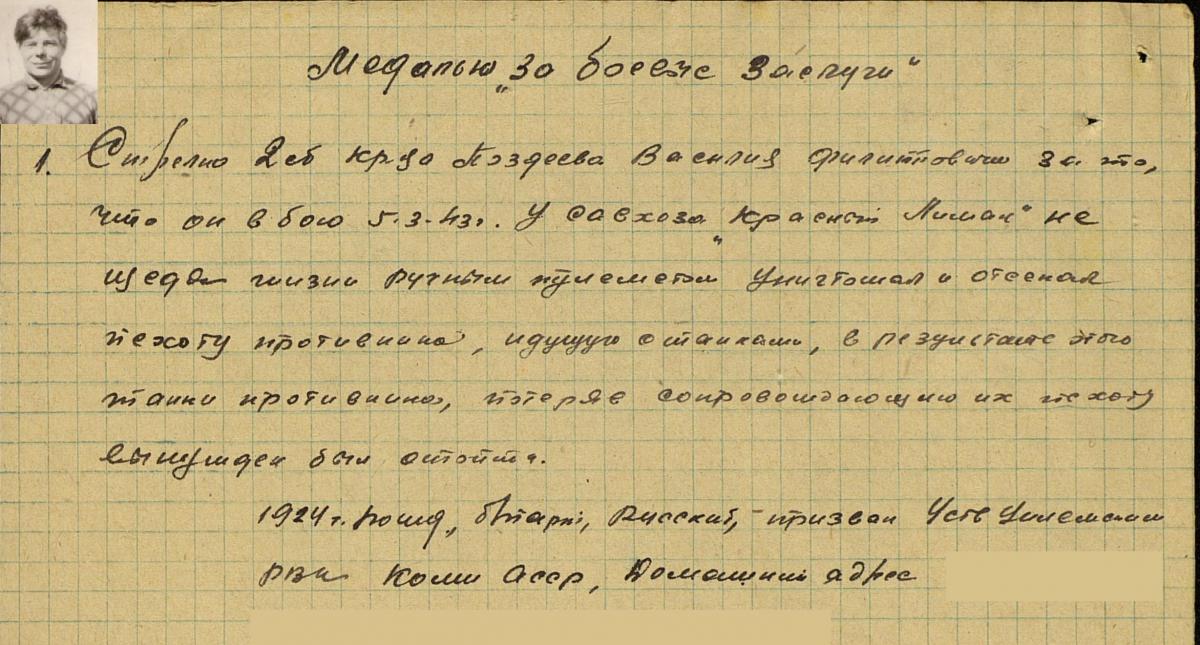 Медалью „За боевые заслуги“
1. Стрелка 2 сб кр-ца Поздеева Василия Филипповича за то,
что он в бою 5.3.43г. у совхоза „Красный Лиман“ не
щедя жизни ручным пулеметом уничтожал и отсекал
пехоту противника, идущую с танками, в результате этого
танки противника, потеряв сопровождающую их пехоту
вынужден был отойти.
1924 г. рожд., б/парт., Русский, призван Усть Цилемским
РВК Коми АССР, Домашний адрес